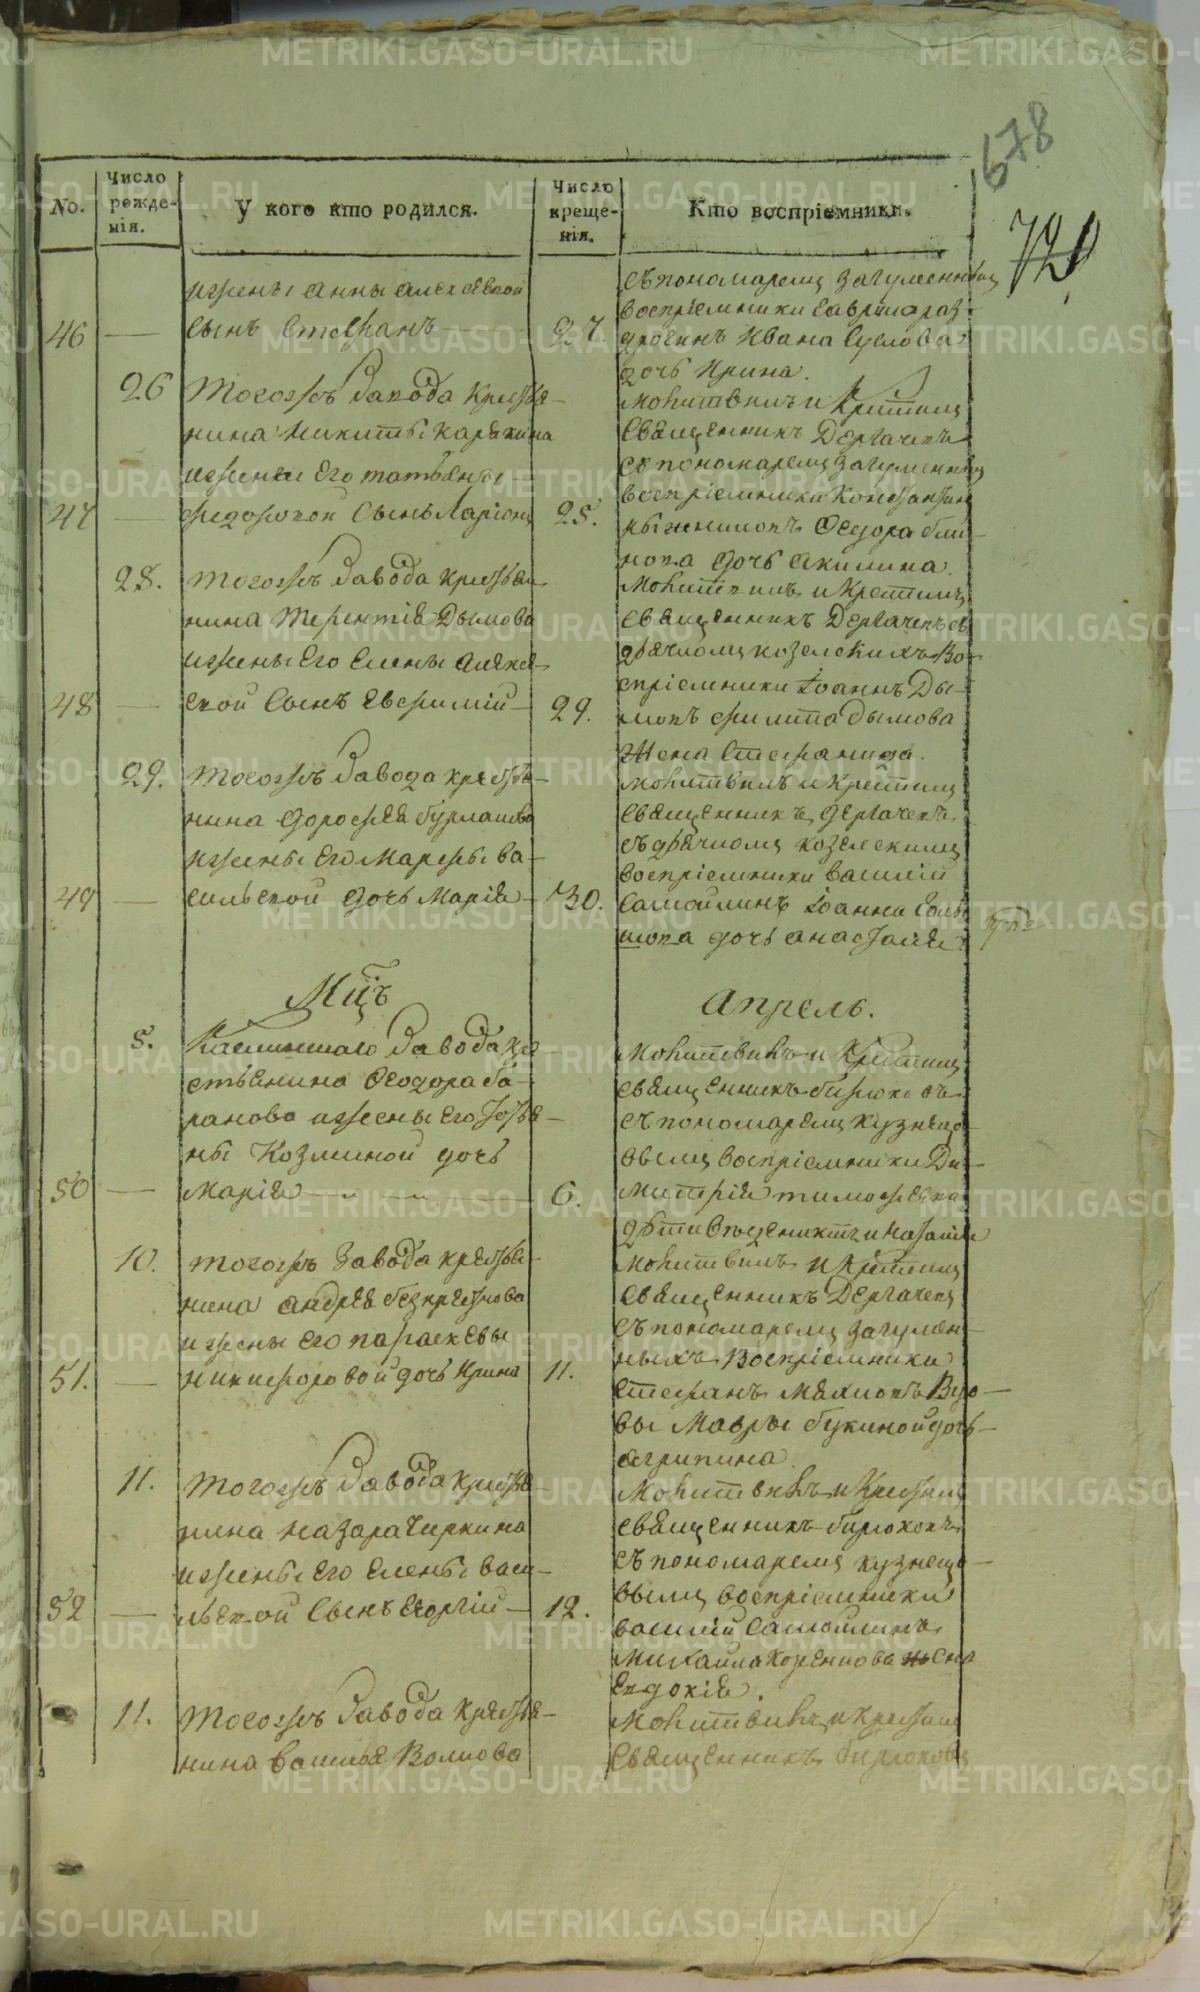 678
720
No.
Число рожденія.
У кого кто родился.
Число крещенія.
Кто воспріемники.
изжены анны алексѣевой
46 — сынъ Стефанъ — 27.
съ пономаремъ загуменныхъ
воспріемники
Ивана Суслова
дочь Ирина.
26 тогожъ завода крестья-
нина никиты карякина
изжены его татьяны
47 — федоровой сынъ Ларіонъ 28.
молитвилъ и крестилъ
священникъ Дергачевъ
съ пономаремъ загуменныхъ
воспріемники Константинъ
Ѳедора бли-
нова дочь акилина.
28. тогожъ завода крестьян-
нина терентія Дымова
изжены его елены алексѣ-
48 — евой сынъ Евфимій — 29.
молитвилъ и крестилъ
священникъ Дергачевъ съ
дьячкомъ козелскихъ во-
спріемники Іоаннъ Ды-
мовъ филипа дымова
жена Стефанида.
29. тогожъ завода крестья-
нина дорофея бурлакова
изжены его марфы ва-
49 — сильевой дочь Марія — 30.
молитвилъ и крестилъ
священникъ дергачевъ
съ дьячкомъ козелскимъ
воспріемники василій
Самойлинъ Іоанна
дочь анастасия
Мцъ Апрель.
5. Каслинскаго завода кре
стьянина Ѳеодора ба-
ранова изжены его татья-
ны Козминой дочь
50 — Марія — 6.
молитвилъ и крестилъ
священникъ бирюковъ
съ пономаремъ кузнецо-
вымъ воспріемники Ди-
митрія тимофеева
10. тогожъ завода крестья-
нина андрея безкрестнова
изжены его параскевы
51. — никифоровой дочь Ирина 11.
молитвилъ и крестилъ
священникъ Дергачевъ
съ пономаремъ загумен-
ныхъ воспріемники
Стефанъ вдо-
вы Мавры букиной дочь
агрипина.
11. тогожъ завода крестья-
нина назара Чиркина
изжены его елены васи-
52 — льевой сынъ Георгій — 12.
молитвилъ и крестилъ
священникъ бирюковъ
съ пономаремъ кузнецо-
вымъ воспріемники
василій самойлинъ
Михайла жена
Евдокія.
11. тогожъ завода крестья-
нина василья Волкова
молитвилъ и крестилъ
священникъ бирюковъ
METRIKI.GASO-URAL.RU